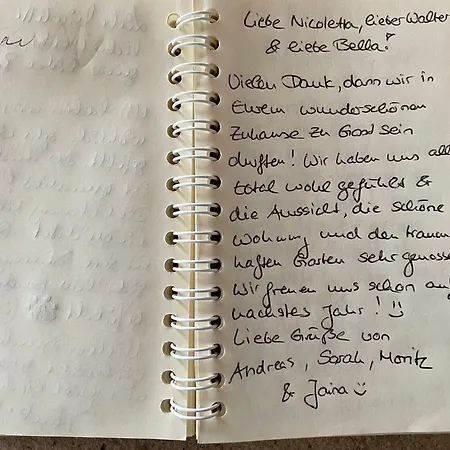 Liebe Nicoletta, lieber Walter
& liebe Bella!
Vielen Dank, dass wir in
Eurem wunderschönen
Zuhause zu Gast sein
durften! Wir haben uns all
total wohl gefühlt &
die Aussicht, die schöne
Wohnung und den traum
haften Garten sehr genosse
Wir freuen uns schon auf
nächstes Jahr! :)
Liebe Grüße von
Andreas, Sarah, Moritz
& Jaina :)